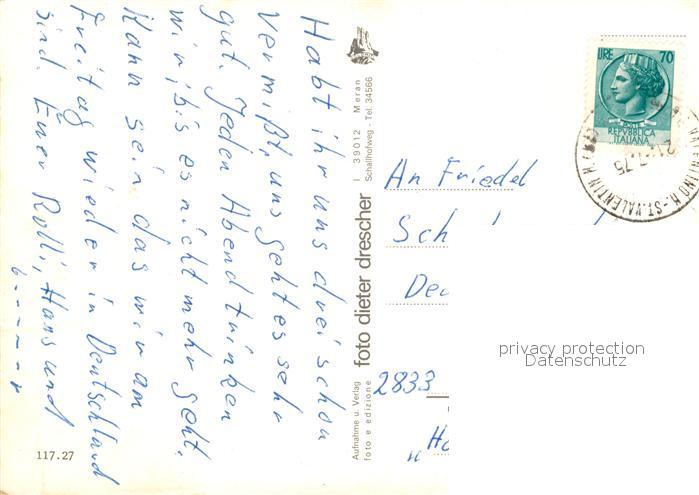 Habt ihr uns drei schon
vermißt, uns geht es sehr
gut. Jeden Abend trinken
wir, bis es nicht mehr geht.
Kann sein das wir am
Freitag wieder in Deutschland
sind. Euer Rolli, Hans und
117.27
I 39012 Meran
Schallhofweg - Tel. 34566
foto dieter drescher
Aufnahme u. Verlag
foto e edizione
LIRE 70
POSTE
REPVBBLICA
ITALIANA
ST. VALENTIN
75
An Friedel
Sch
Deu
2833
"Ho
privacy protection
Datenschutz